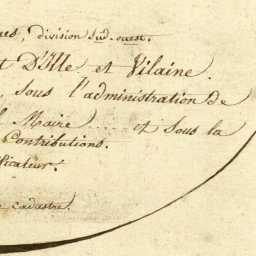 division sud-ouest.
D'Ille et Vilaine.
, sous l'administration De
Maire ..... et Sous la
Contributions.
cadastre.